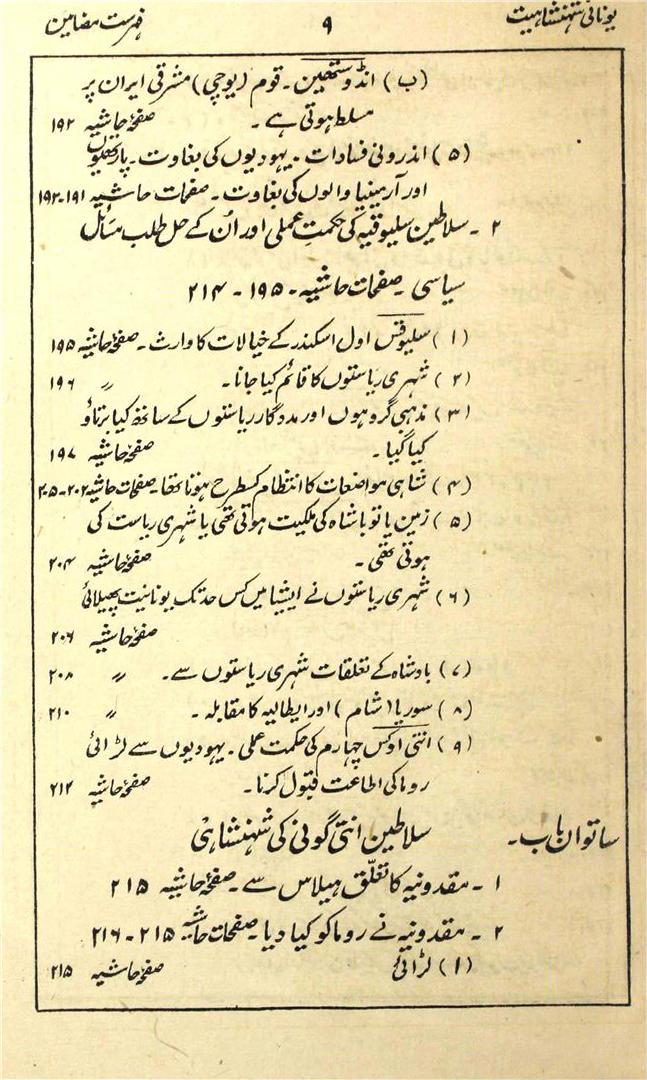 یونانی شہنشاہیت ۹ فہرست مضامین
(ب) انڈوستھین۔ قوم (یوچی) مشرقی ایران پر
مسلط ہوتی ہے۔ صفحۂ حاشیہ ۱۹۲
(۵) اندرونی فسادات۔ یہودیوں کی بغاوت۔ پارتھیوں
اور آرمینیا والوں کی بغاوت۔ صفحات حاشیہ ۱۹۱-۱۹۲
۲۔ سلاطین سلیوقیہ کی حکمت عملی اور اُن کے حل طلب مسائل
سیاسی۔ صفحات حاشیہ۔ ۱۹۵۔ ۲۱۴
(۱) سلیوقس اول اسکندر کے خیالات کا وارث۔ صفحۂ حاشیہ ۱۹۵
(۲) شہری ریاستوں کا قائم کیا جانا۔ 〃 ۱۹۶
(۳) مذہبی گروہوں اور مددگار ریاستوں کے ساتھ کیا برتاؤ
کیا گیا۔ صفحۂ حاشیہ ۱۹۷
(۴) شاہی مواضعات کا انتظام کسطرح ہوتا تھا۔ صفحات حاشیہ ۲۰۲-۲۰۵
(۵) زمین یا تو بادشاہ کی ملکیت ہوتی تھی یا شہری ریاست کی
ہوتی تھی۔ صفحۂ حاشیہ ۲۰۴
(۶) شہری ریاستوں نے ایشیا میں کس حد تک یونانیت پھیلائی
صفحۂ حاشیہ ۲۰۶
(۷) بادشاہ کے تعلقات شہری ریاستوں سے۔ 〃 ۲۰۸
(۸) سوریا (شام) اور ایطالیہ کا مقابلہ۔ 〃 ۲۱۰
(۹) انتی اوکس چہارم کی حکمت عملی۔ یہودیوں سے لڑائی
روما کی اطاعت قبول کرنا۔ صفحۂ حاشیہ ۲۱۲
ساتواں باب۔ سلاطین انتی گونی کی شہنشاہی
۱۔ مقدونیہ کا تعلّق ہیلاس سے۔ صفحۂ حاشیہ ۲۱۵
۲۔ مقدونیہ نے روما کو کیا دیا۔ صفحات حاشیہ ۲۱۵-۲۱۶
(۱) لڑائی صفحۂ حاشیہ ۲۱۵